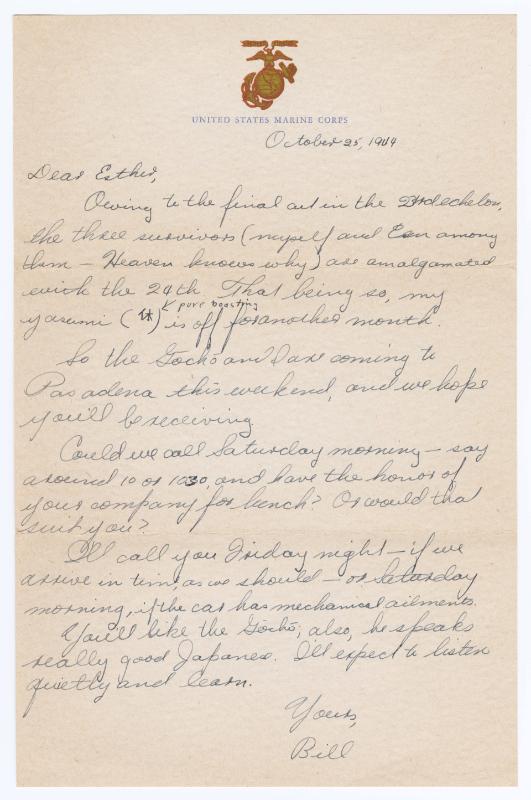 UNITED STATES MARINE CORPS
October 25, 1944
Dear Esther,
Owing to the final act in the 23rd echelon,
the three survivors (myself and Con among
them — Heaven knows why) are amalgamated
with the 24th. That being so, my
pure boasting
yasumi (休) is off for another month.
So the Gochs and I are coming to
Pasadena this weekend, and we hope
you'll be receiving.
Could we call Saturday morning — say
around 10 or 1030, and have the honor of
your company for lunch? Or would that
suit you?
I'll call you Friday night — if we
arrive in time, as we should — or Saturday
morning, if the car has mechanical ailments.
You'll like the Gochs; also, he speaks
really good Japanese. I'll expect to listen
quietly and learn.
Yours,
Bill